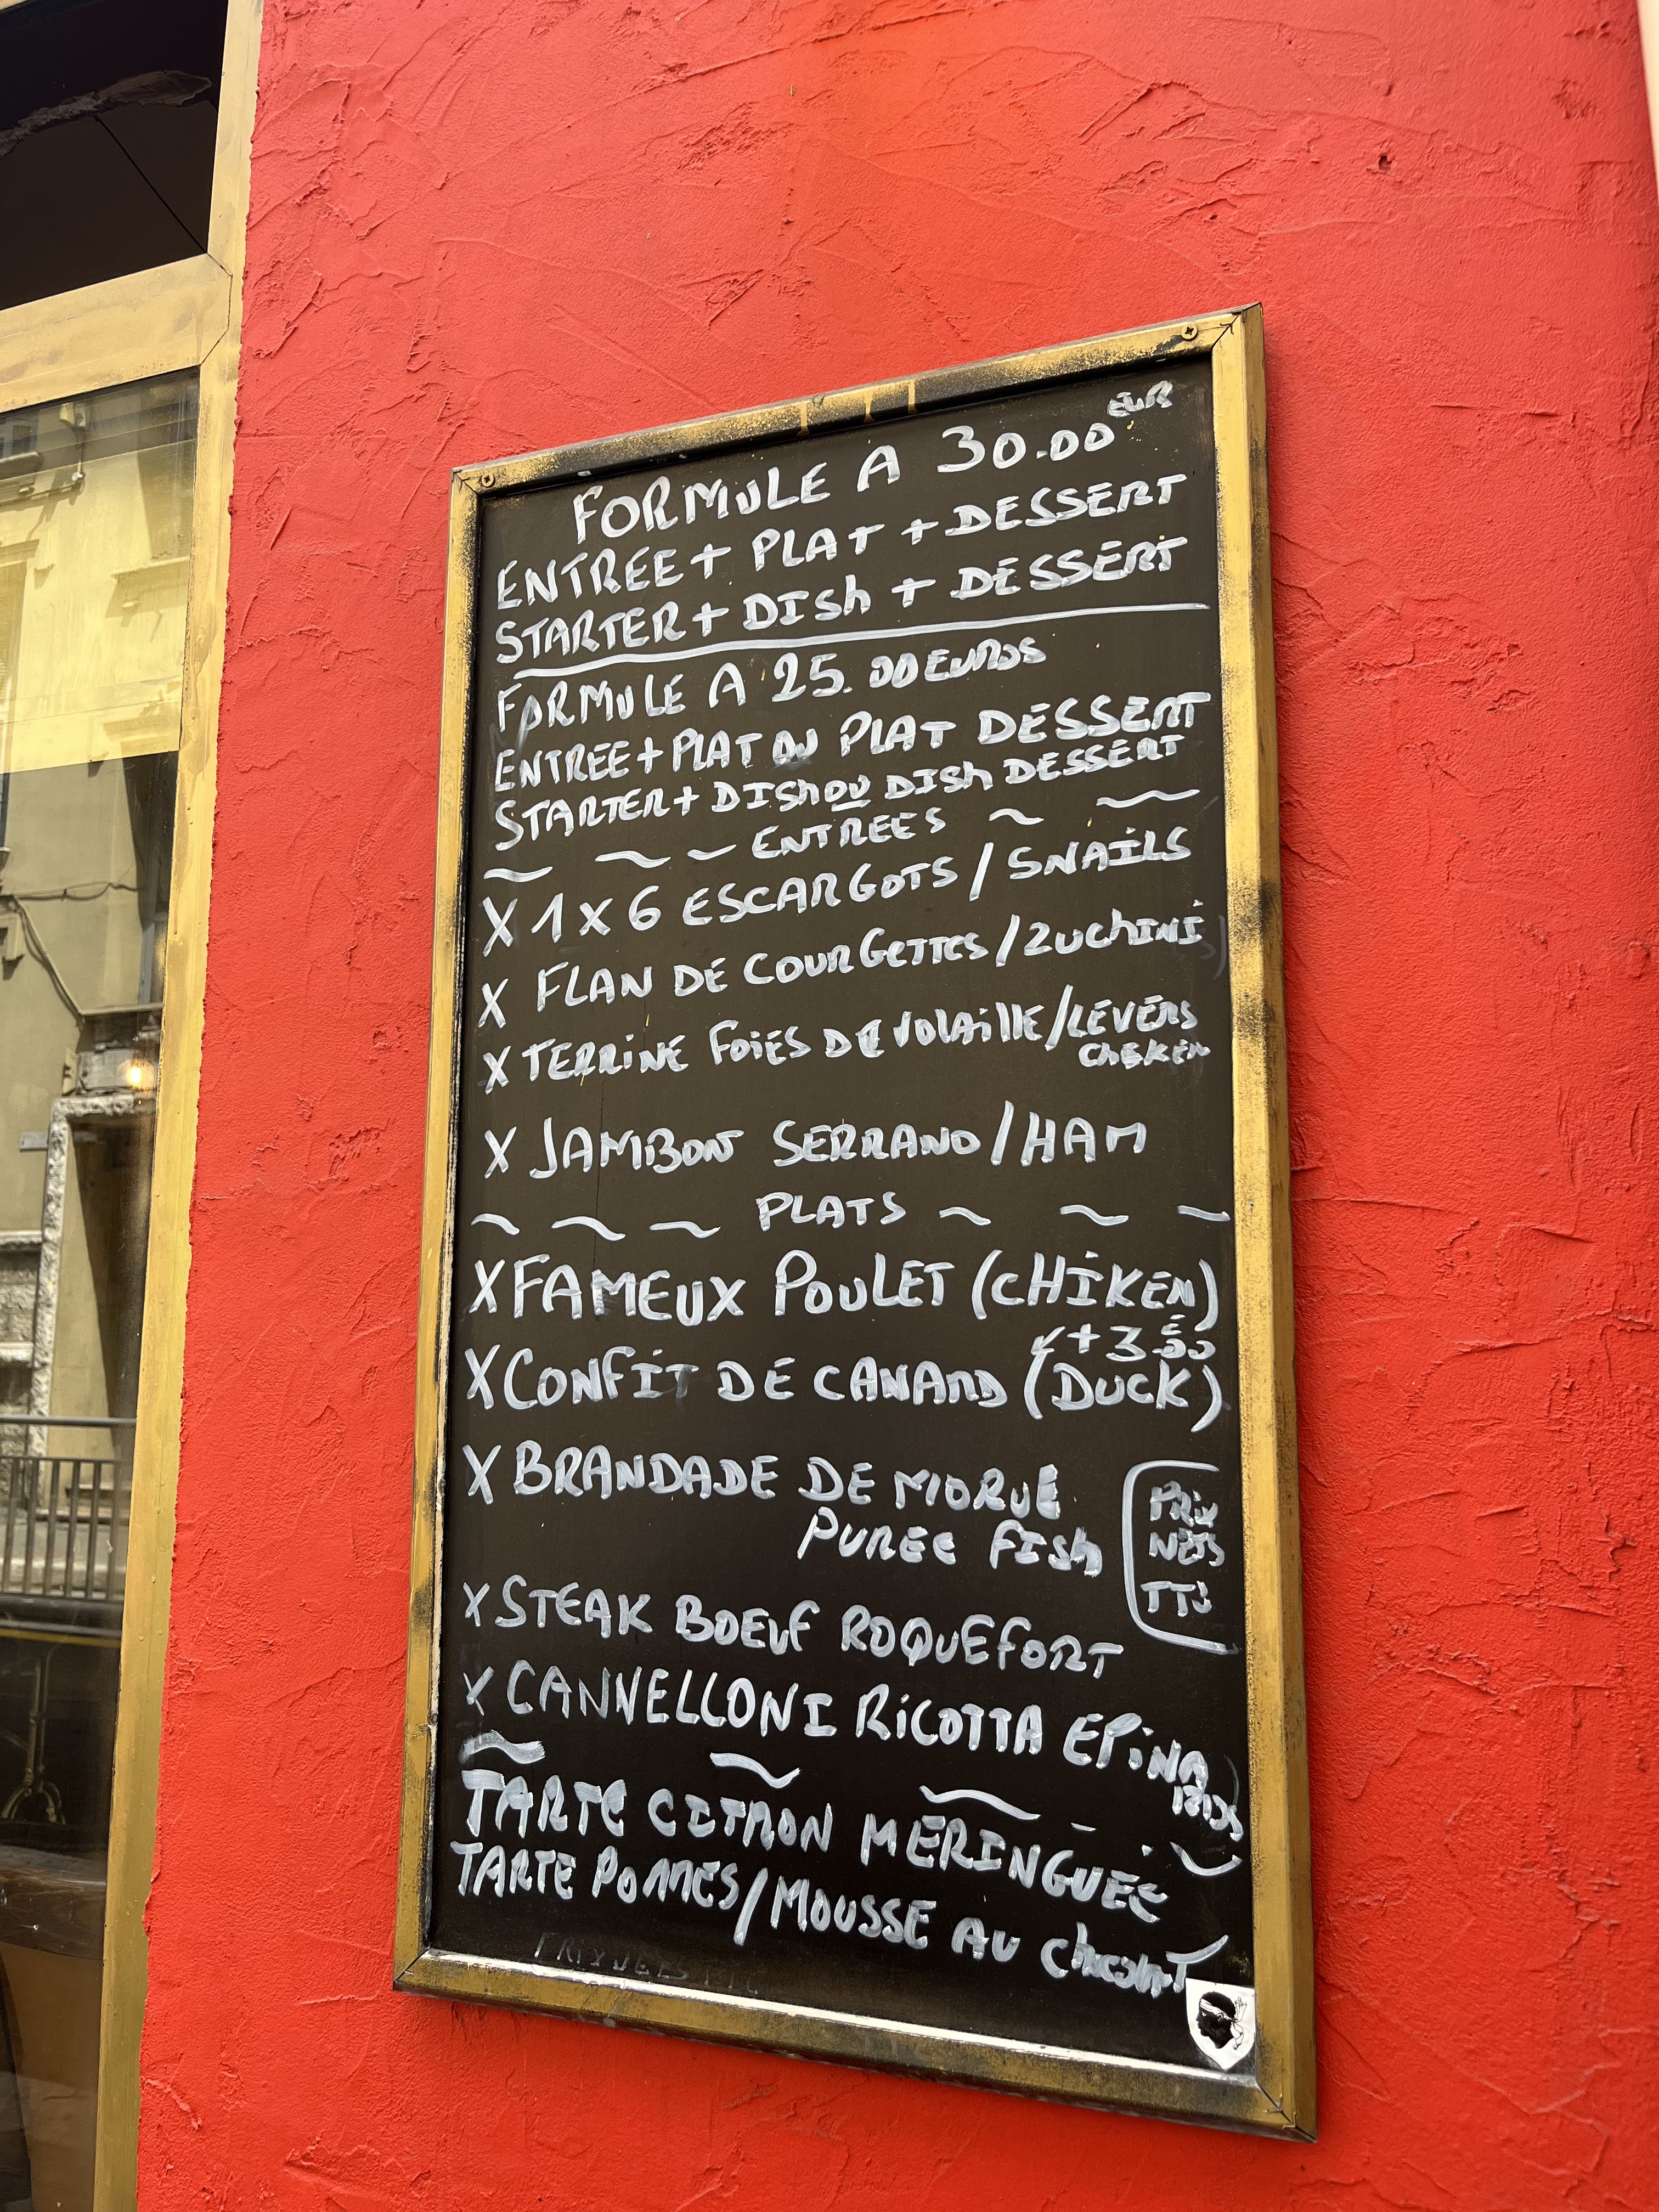 FORMULE A 30.00 EUR
ENTREE + PLAT + DESSERT
STARTER + DISh + DESSERT
FORMULE A 25.00 EUROS
ENTREE + PLAT OU PLAT DESSERT
STARTER + DISh OU DISh DESSERT
~ ~ ~ ENTREES ~ ~
X 1 X 6 ESCARGOTS / SNAILS
X FLAN DE COURGETTES / ZUChiNi
X TERRINE FOIES DE VOLAILLE / LEVERS
ChEKEN
X JAMBON SERRANO / HAM
~ ~ ~ PLATS ~ ~ ~
X FAMEUX POULET (CHIKEN)
+ 3.50
X CONFIT DE CANARD (DUCK)
X BRANDADE DE MORUE
PUREE FISh
PRIX
NETS
X STEAK BOEUF ROQUEFORT
X CANNELLONI RICOTTA EPINA
RDS
~ ~ ~ ~
TARTE CITRON MERINGUEE
TARTE POMMES / MOUSSE AU ChocolAT